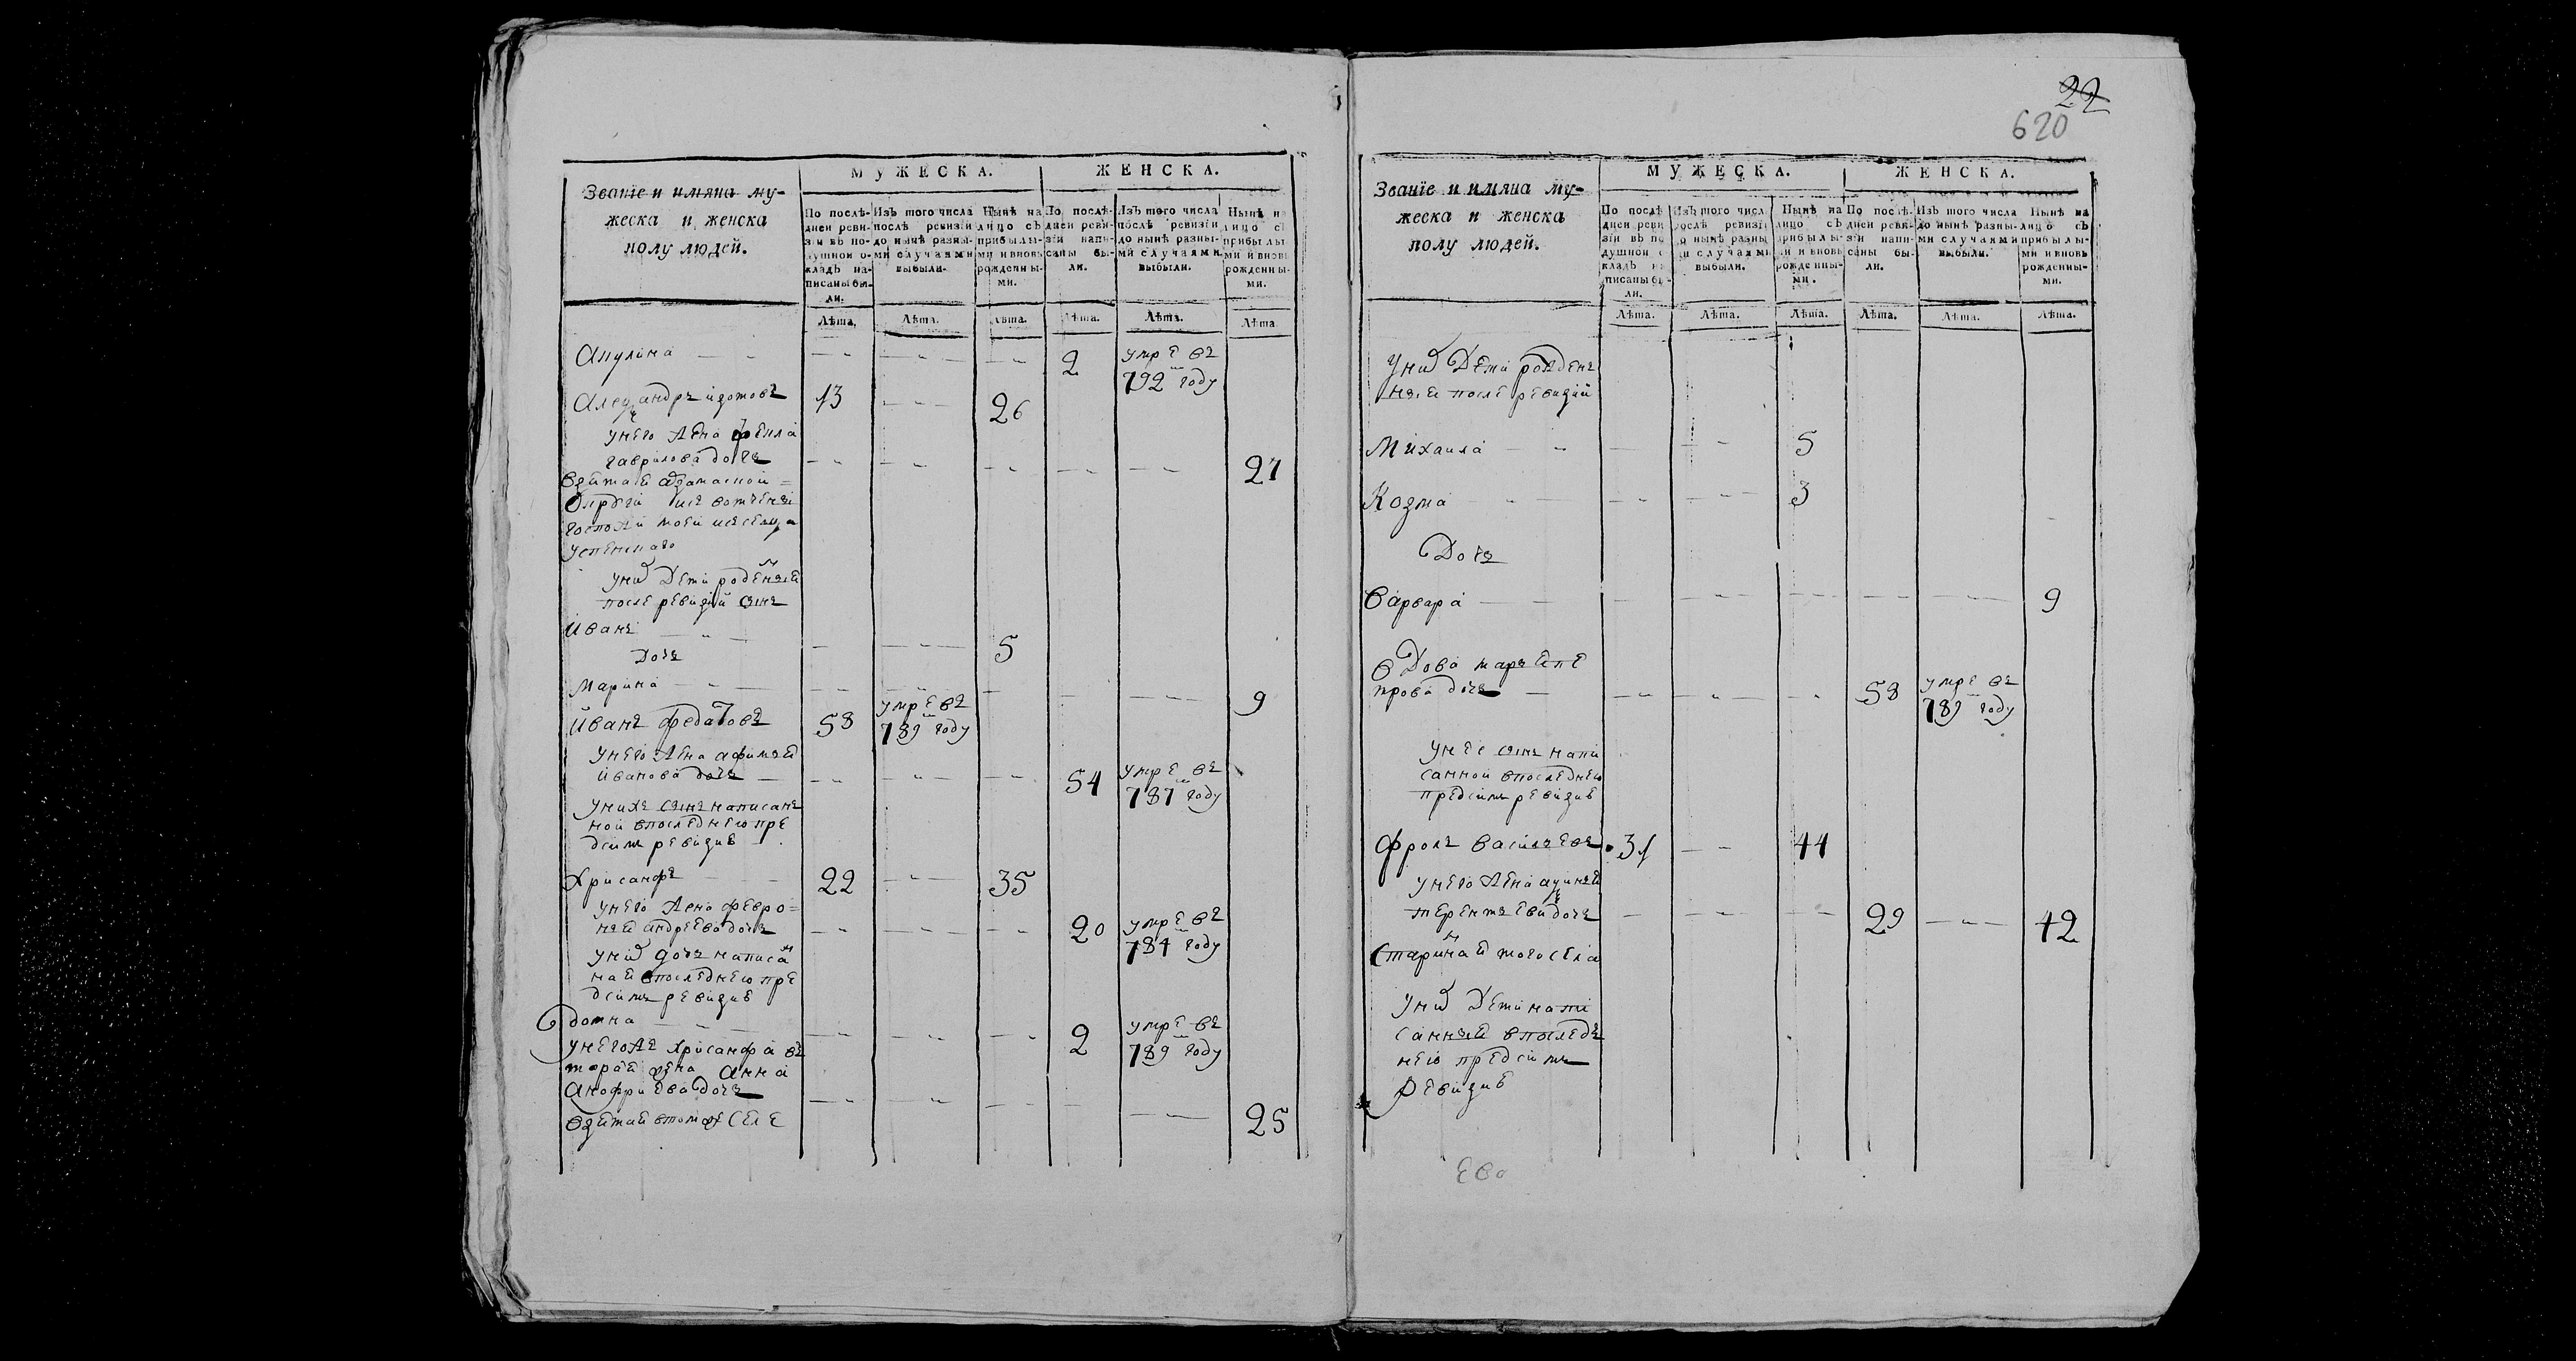 22
620
МУЖЕСКА.
ЖЕНСКА.
Званїе и имяна му-
жеска и женска
полу людей.
По послѣ-
дней реви-
зїи въ по-
душной о-
кладъ на-
писаны бы-
ли.
Изъ того числа
послѣ ревизїи
до нынѣ разны-
ми случаями
выбыли.
Нынѣ на
лицо съ
прибылы-
ми и вновь
рожденны-
ми.
По послѣ-
дней реви-
зїи напи-
саны бы-
ли.
Изъ того числа
послѣ ревизїи
до нынѣ разны-
ми случаями
выбыли.
Нынѣ на
лицо съ
прибылы-
ми и вновь
рожденны-
ми.
Лѣта. Лѣта. Лѣта. Лѣта. Лѣта. Лѣта.
Акулина 2 умре въ
792 году
Алеѯандръ изотовъ 13 26
унего жена
гаврилова дочь 27
взетае
вотчены
госпожи моеи исъселца
успенскаго
уних дети рожденыя
после ревизии сынъ
иванъ 5
дочь
Марина 9
иванъ федотовъ 58 умре въ
789 году
унего жена афимья
иванова дочь 54 умре въ
787 году
унихъ сынъ написанъ
ной впоследнею пре
дсимъ ревизие
Хрисанфъ 22 35
унего жена февро=
нья андреева дочь 20 умре въ
784 году
уних дочь написа
ная впоследнею пре
дсимъ ревизие
домна 2 умре въ
789 году
унегожъ хрисанфа въ
торая жена анна
анофриева дочь
взятая втомже селе 25
МУЖЕСКА.
ЖЕНСКА.
Званїе и имяна му-
жеска и женска
полу людей.
По послѣ
дней реви
зїи въ по
душной о
кладъ на
писаны бы-
ли.
Изъ того числ
послѣ ревизї
до нынѣ разны
ми случаям
выбыли.
Нынѣ на
лицо съ
прибылы-
ми и вновь
рожденны-
ми.
По послѣ-
дней реви-
зїи напи-
саны бы-
ли.
Изъ того числа
до нынѣ разны-
ми случаями
выбыли.
Нынѣ на
лицо съ
прибылы-
ми и вновь
рожденны-
ми.
Лѣта. Лѣта. Лѣта. Лѣта. Лѣта. Лѣта.
Уних Дети рожденъ
ныя после ревизии
Михаила 5
Козма 3
Дочь
Варвара 9
вдова марья пе
трова дочь 58 умре въ
789 году
унее сынъ напи
санной впоследнею
предсимъ ревизие
Фролъ васильевъ 31 44
унего жена аѯинья
терентьева дочь 29 42
Стариная того села
Уних Дети напи
санныя впоследъ
нею предсимъ
Ревизие
Ево